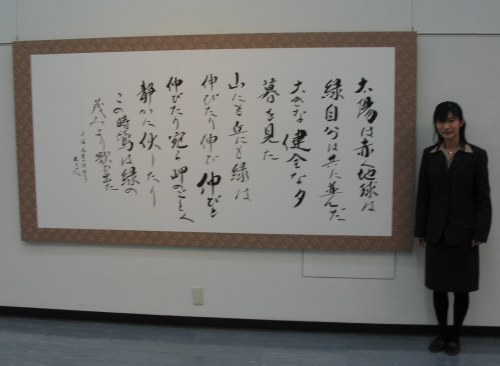 太陽は赤地球は
緑自分は共に並んだ
大きな健全な夕
暮を見た
山にも丘にも緑は
伸びたり伸び伸びと
伸びたり宛も岬のごとく
静かに伏したり
この時鶯は緑の
茂みより飛び出た